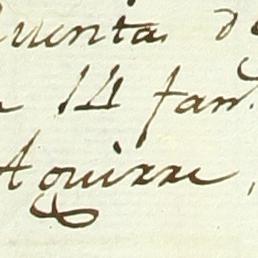 Cuenta de
14 fan.
Aguirre,